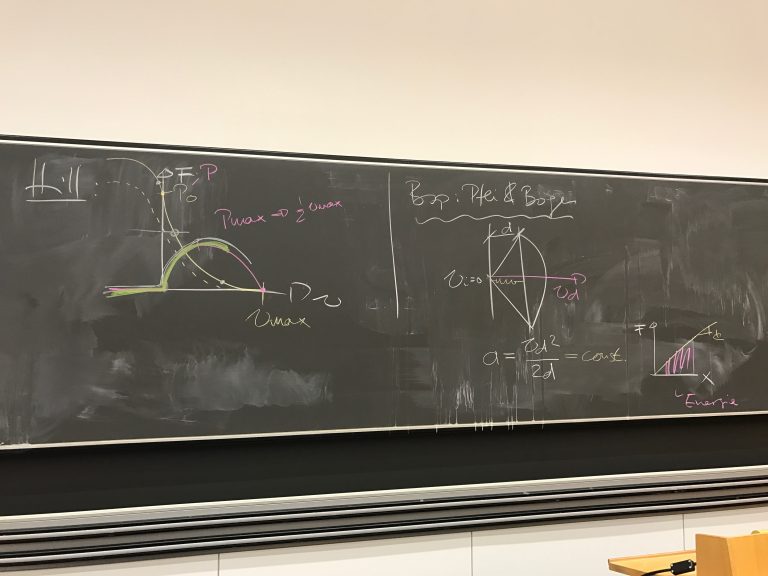 Hill
F P
P₀
Pmax → ½ vmax
v
vmax
Bsp: Pfeil & Bogen
d
vi=0
vd
a = vd²/2d = const.
F
k
x
Energie